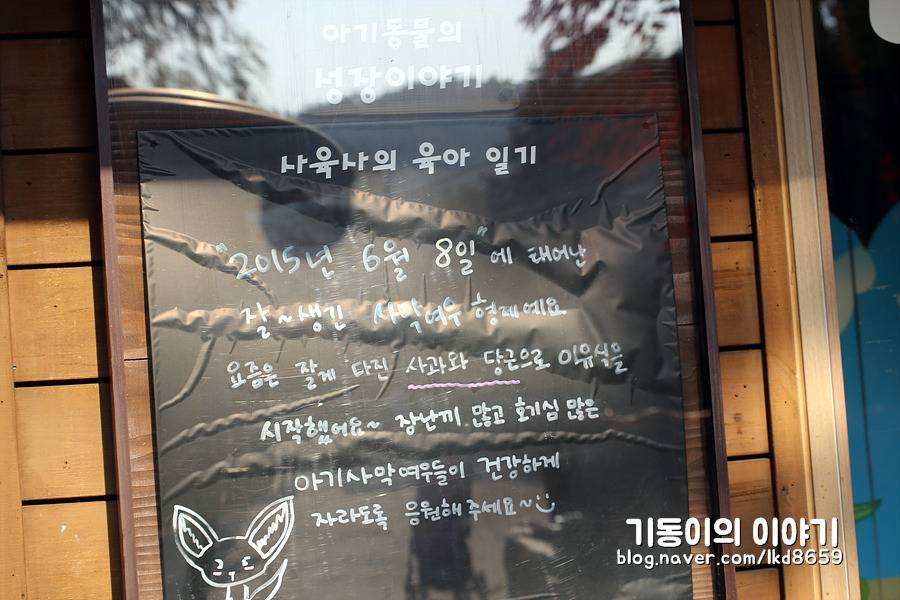 아기동물의
성장이야기
사육사의 육아 일기
"2015년 6월 8일"에 태어난
잘~생긴 사막여우 형제예요
요즘은 잘게 다진 사과와 당근으로 이유식을
시작했어요~ 장난끼 많고 호기심 많은
아기사막여우들이 건강하게
자라도록 응원해주세요~
기동이의 이야기
blog.naver.com/lkd8659